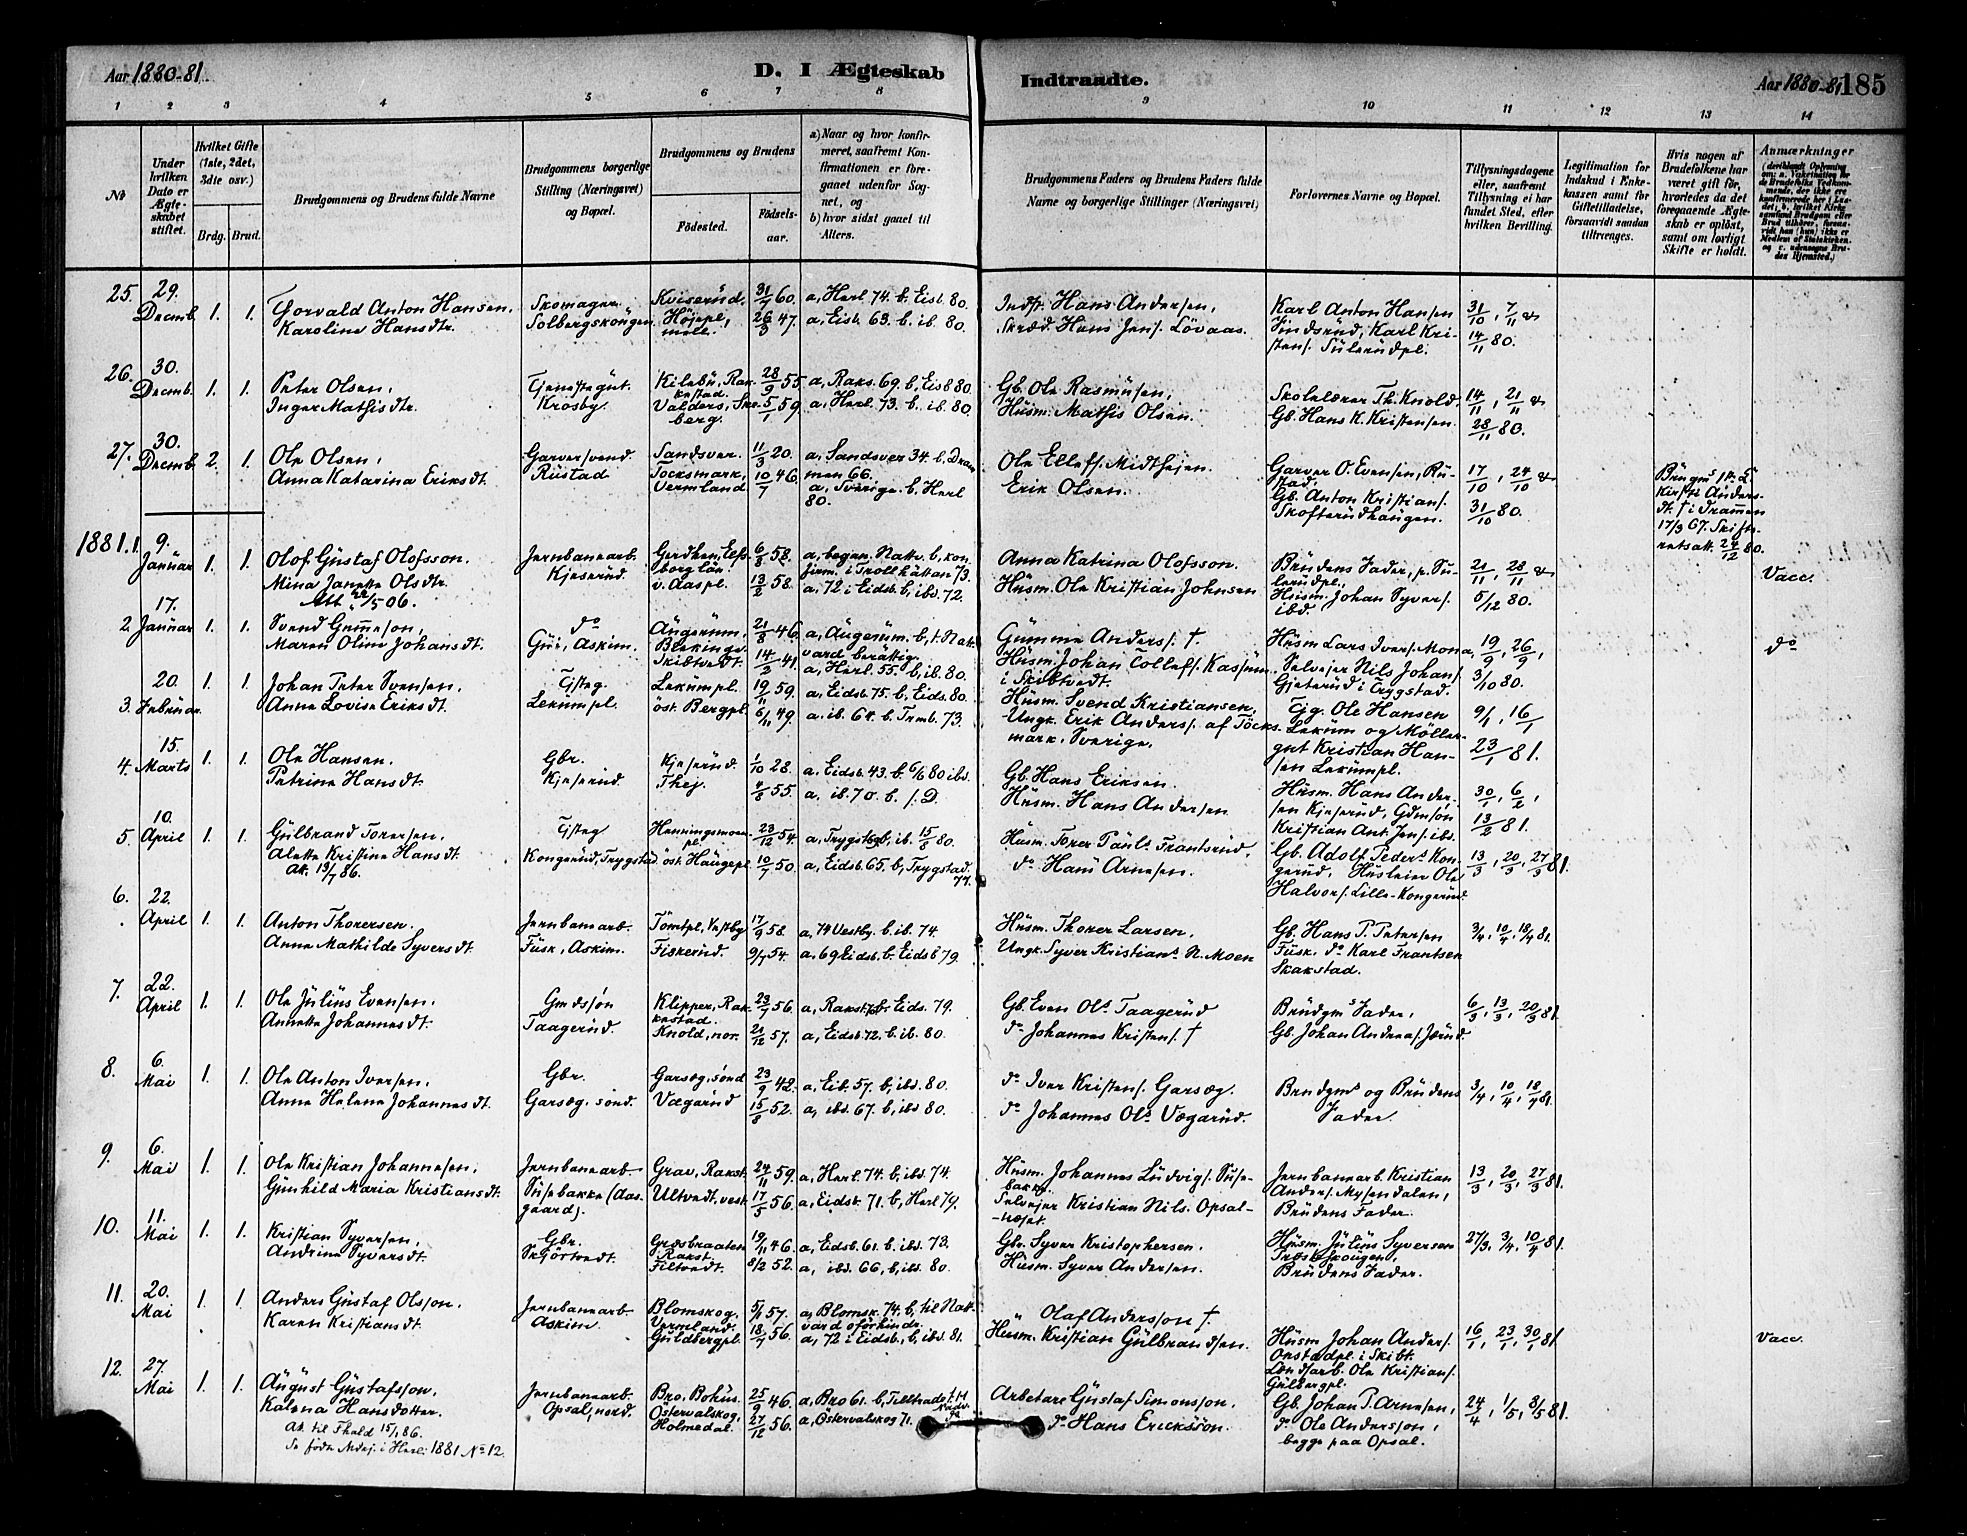 Aar 1880-81.
D. I Ægteskab Indtraadte.
Aar 1880-81 185
1 2 3 4 5 6 7 8 9 10 11 12 13 14
No
Under hvilken Dato er Ægteskabet stiftet.
Hvilket Gifte (1ste, 2det, 3die osv.)
Brdg. Brud.
Brudgommens og Brudens fulde Navne
Brudgommens borgerlige Stilling (Næringsvei) og Bopæl.
Brudgommens og Brudens
Fødested.
Fødselsaar.
a) Naar og hvor konfirmeret, saafremt Konfirmationen er foregaaet udenfor Sognet, og
b) hvor sidst gaaet til Alters.
Brudgommens Faders og Brudens Faders fulde Navne og borgerlige Stillinger (Næringsvei)
Forlovernes Navne og Bopæl.
Tillysningsdagene eller, saafremt Tillysning ei har fundet Sted, efter hvilken Bevilling.
Legitimation for Indskud i Enkekassen samt for Giftetilladelse, forsaavidt saadan tiltrænges.
Hvis nogen af Brudefolkene har været gift før, hvorledes da det foregaaende Ægteskab er opløst, samt om lovligt Skifte er holdt.
Anmærkninger
25. 29. Decemb. 1. 1. Thorvald Anton Hansen, Skomager. Kviserud. 31/7 60. a, Herl 74. b. Eisb. 80. Indst. Hans Andersen, Karl Anton Hansen 31/10, 7/11 &
Karoline Hansdtr. Solbergskougen Højepl, 26/3 47. a, Eisb. 63. b. ib. 80. Skræd. Hans Jens. Lövaas. Findsrud, Karl Kristens. Sulerudpl. 14/11 80.
26. 30. Decemb. 1. 1. Peter Olsen, Tjenestegut. Kilebu, Rakkestad. 28/9 55. a, Raks. 69. b, Eisb 80. Gb. Ole Rasmusen, Skolelærer Th. Knold, 14/11, 21/11 &
Inger Mathisdtr. Krosby. Valders, Skeberg. 5/1 59. a, Herl. 73. b. ib. 80. Husm. Mathis Olsen. Gb. Hans K. Kristensen. 28/11 80.
27. 30. Decemb. 2. 1. Ole Olsen, Garversvend. Sandsver. 11/3 20. a, Sandsver 34. b, Drammen 66. Ole Ellefs. Midthejen. Garver O. Evensen, Rustad. 17/10, 24/10 &
Anna Katarina Eriksdt. Rustad Tocksmark, Vermland 10/7 46. a. Sverige. b, Herl 80. Erik Olsen. Gb. Anton Kristians. Skofterudhaugen. 31/10 80.
Brugms 1ste Kirsti Andersdt. † i Dramen 17/9 67. Skifteretsatt. 24/12 80.
1881.
1. 9. Januar 1. 1. Olof Gustaf Olofsson. Jernbanearb. Gerdhem, Elfsborg län 6/8 58. a, began. Nattv. b, konfirm. i Trollhättan 73. Anna Katrina Olofsson. Brudens Fader, p. Sulerudpl, 21/11, 28/11 &
Mina Janette Olsdtr. Kjeserud. v. Aaspl. 13/2 58. a, 72 i Eidsb. b, ibd. 72. Husm. Ole Kristian Johnsen Husm. Johan Syvers. ibd. 5/12 80. Vacc.
Att 22/5 06.
2 17. Januar 1. 1. Svend Gumeson, do Augerum, Blekinge 21/8 46. a, Augerum. b, t. Nattvard berättig. Gumme Anders. † Husm Lars Ivers. Mona, 19/9, 26/9, do
Maren Oline Johansdt. Gui, Askim. Skibtvedt. 14/2 41. a, Herl. 55. b, ib. 80. Husm. Johan Tollefs. Kassum i Skibtvedt. Selvejer Nils Johans. Gjeterud i Trygstad. 3/10 80.
3. 20. Februar 1. 1. Johan Peter Svensen. Tjsteg. Lekumpl. 19/11 59. a, Eidsb. 75. b, Eids. 80. Husm. Svend Kristiansen. Tjg. Ole Hansen 9/1, 16/1
Anna Lovisa Eriksdt. Lekumpl. öst. Bergpl. 6/11 49. a. ib. 64. b. Trmb. 73. Ungk. Erik Anders. af Töcksmark. Sverige. Lekum og Möllergut Kristian Hansen Lekumpl. 23/1 81.
4. 15. Marts 1. 1. Ole Hansen. Gbr. Kjeserud. 1/10 28. a. Eidsb. 43. b. 6/6 80 ibd. Gb. Hans Eriksen. Husm. Hans Andersen Kjeserud, Gdmsøn 30/1, 6/2,
Petrine Hansdt. Kjeserud Thej. 4/8 55. a. ib. 70. b. s. D. Husm. Hans Andersen Kristian Ant. Jens. ibd. 13/2 81.
5 10. April 1. 1. Gulbrand Torersen. Tjsteg Henningsmoenpl. 23/12 54. a, Trygstad b, ib. 15/5 80. Husm. Torer Pauls. Frantsrud. Gb. Adolf Peders. Kongerud. Husleier Ole Halvors. Lille-Kongerud. 13/3, 20/3, 27/3 81.
Alette Kristine Hansdt. Kongerud, Trygstad öst. Haugepl. 10/7 50. a, Eidsb. 65. b, Trygstad 77. do Hans Arnesen.
At. 13/7 86.
6. 22. April 1. 1. Anton Thorersen. Jernbanearb. Tömtpl, Vestby 17/9 58. a, 74 Vestby. b. ib. 74. Husm. Thorer Larsen. Gb. Hans P. Petersen 3/4, 10/4, 18/4 81.
Anne Mathilde Syversdt. Fusk, Askim. Fiskerud. 9/7 54. a, 69 Eidsb. b. Eidsb 79. Ungk. Syver Kristians. N. Moen Fusk, do Karl Frantsen Skakstad.
7. 22. April 1. 1. Ole Julius Evensen. Gmdssøn Klipper, Rakkestad. 23/7 56. a, Rakst. b. Eids. 79. Gb. Even Ols. Taagerud Brudgms Fader, 6/3, 13/3, 20/3 81.
Annette Johannesdt. Taagerud. Knold, nor. 21/12 57. a, Eidsb. 72. b. ib. 80. do Johannes Kristens. † Gb. Johan Anders. Jærud.
8. 6. Mai 1. 1. Ole Anton Iversen. Gbr. Garseg, sönd 23/9 42. a, Eib. 57. b, ibd. 80. do Iver Kristens. Garseg. Brudgms og Brudens Fader. 3/4, 10/4, 18/4 81.
Anne Helene Johannesdt. Garseg, sönd. Vægarud 15/8 52. a, ibd. 67. b, ibd 80. do Johannes Ols. Vægarud.
9. 6. Mai 1. 1. Ole Kristian Johannesen. Jernbanearb. Grav, Rakst. 24/11 59. a, Herl. 74. b, ibd. 74. Husm. Johannes Ludvigs. Susebakke. Jernbanearb. Kristian Anders. Mysendalen, 13/3, 20/3, 27/3 81.
Gunhild Maria Kristiansdt. Susebakke (Aasgaard). Ultvedt, vest. 17/5 56. a, Eidsb. 71. b, Herl 79. Selvejer Kristian Nils. Opsalnæset. Brudens Fader.
10. 11. Mai 1. 1. Kristian Syversen. Gbr. Græsbraaten Rakst. 19/11 46. a, Eidsb. 61. b. ibd. 73. Gbr. Syver Kristophersen. Husm. Julius Syversen 27/3, 3/4, 10/4 81.
Andrine Syversdt. Skjörtvedt. Filtvedt. 8/2 52. a, ibd. 66, b, ibd. 80. Husm. Syver Andersen. Træskskougen, Brudens Fader.
11. 20. Mai 1. 1 Anders Gustaf Olsson. Jernbanearb. Blomskog. Vermland. 5/1 57. a, Blomsk. 74. b, til Nattvard oförhindr. Olaf Andersson †. Husm Johan Anders. Onstadpl. i Skibt. 16/1, 23/1, 30/1 81.
Karen Kristiansdt. Askim. Guldbergpl. 18/7 56. a, 72 i Eidsb., b, ibd. 81. Husm. Kristian Gulbrandsen. Landsarb. Ole Kristians. Gulbergpl. Vacc.
12. 27. Mai 1. 1. August Gustafsson. Jernbanearb. Bro. Bohus. 25/9 46. a, Bro 61. b, Arbetare Gustaf Simonsson. Gb. Johan P. Arnesen, 24/4, 1/5, 8/5 81.
Katena Hansdotter. Opsal, nord. Östervalskog, Holmedal. 27/12 56. a, Östervalskog 71. do Hans Ericksson. do Ole Andersson, begge paa Opsal.
At. til Fhald 15/1 86.
Se födte i Herl: 1881 No 12.